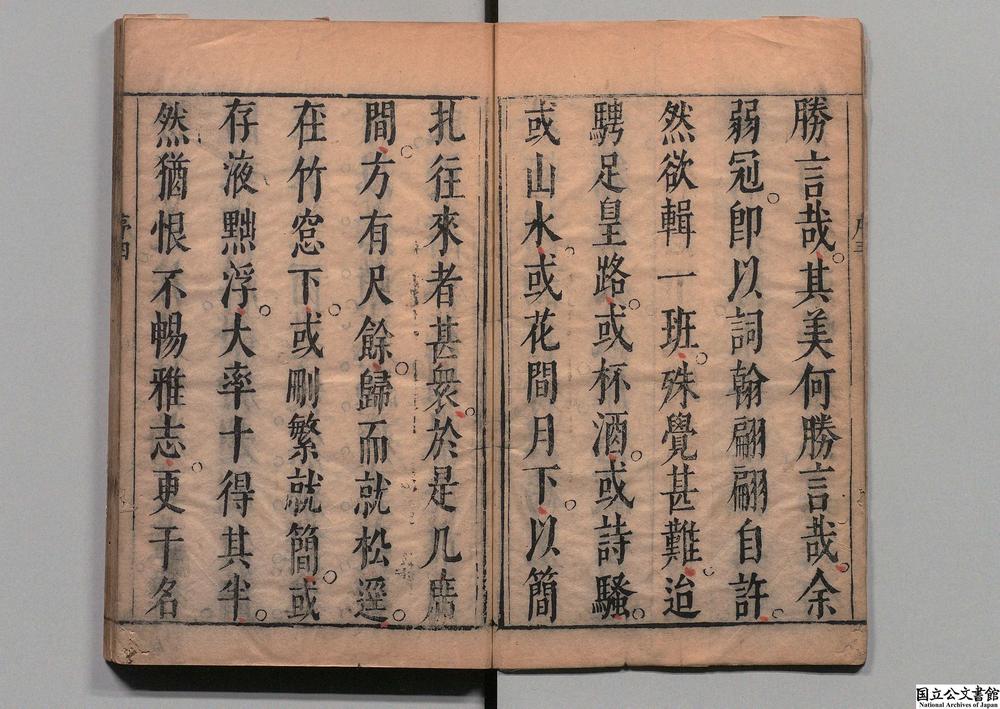 勝言哉其美何勝言哉余
弱冠即以詞翰翩翩自許
然欲輯一班殊覺甚難迨
騁足皇路或杯酒或詩騷
或山水或花間月下以簡
扎往來者甚衆於是几席
間方有尺餘歸而就松逕
在竹窓下或刪繁就簡或
存液黜浮大率十得其半
然猶恨不暢雅志更于名
序三
序四
国立公文書館
National Archives of Japan